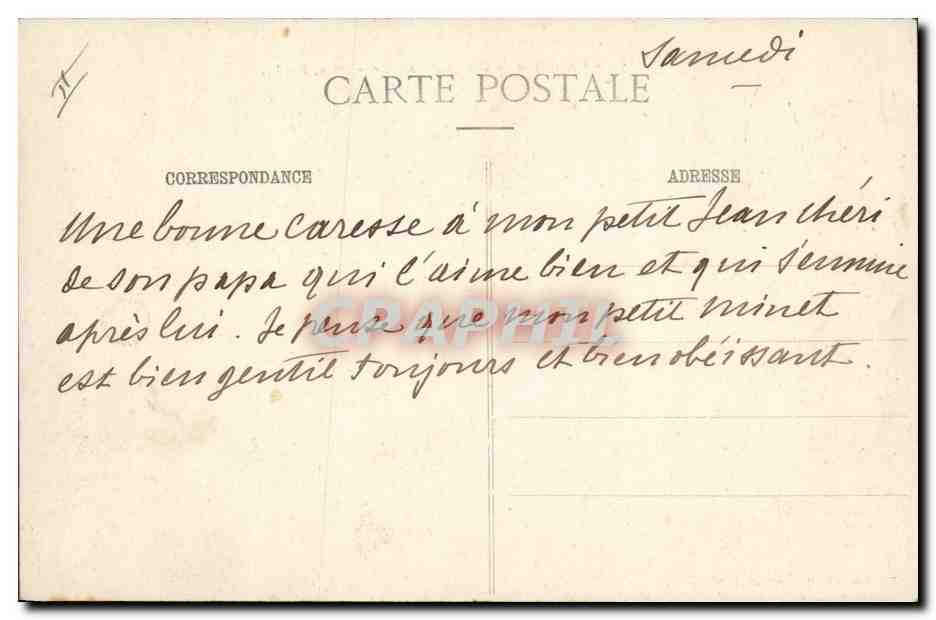 Samedi
CARTE POSTALE
CORRESPONDANCE
ADRESSE
Une bonne caresse à mon petit Jean chéri
de son papa qui l'aime bien et qui s'ennuie
après lui. Je pense que mon petit minet
est bien gentil toujours et bien obéissant.
CPAPHIL